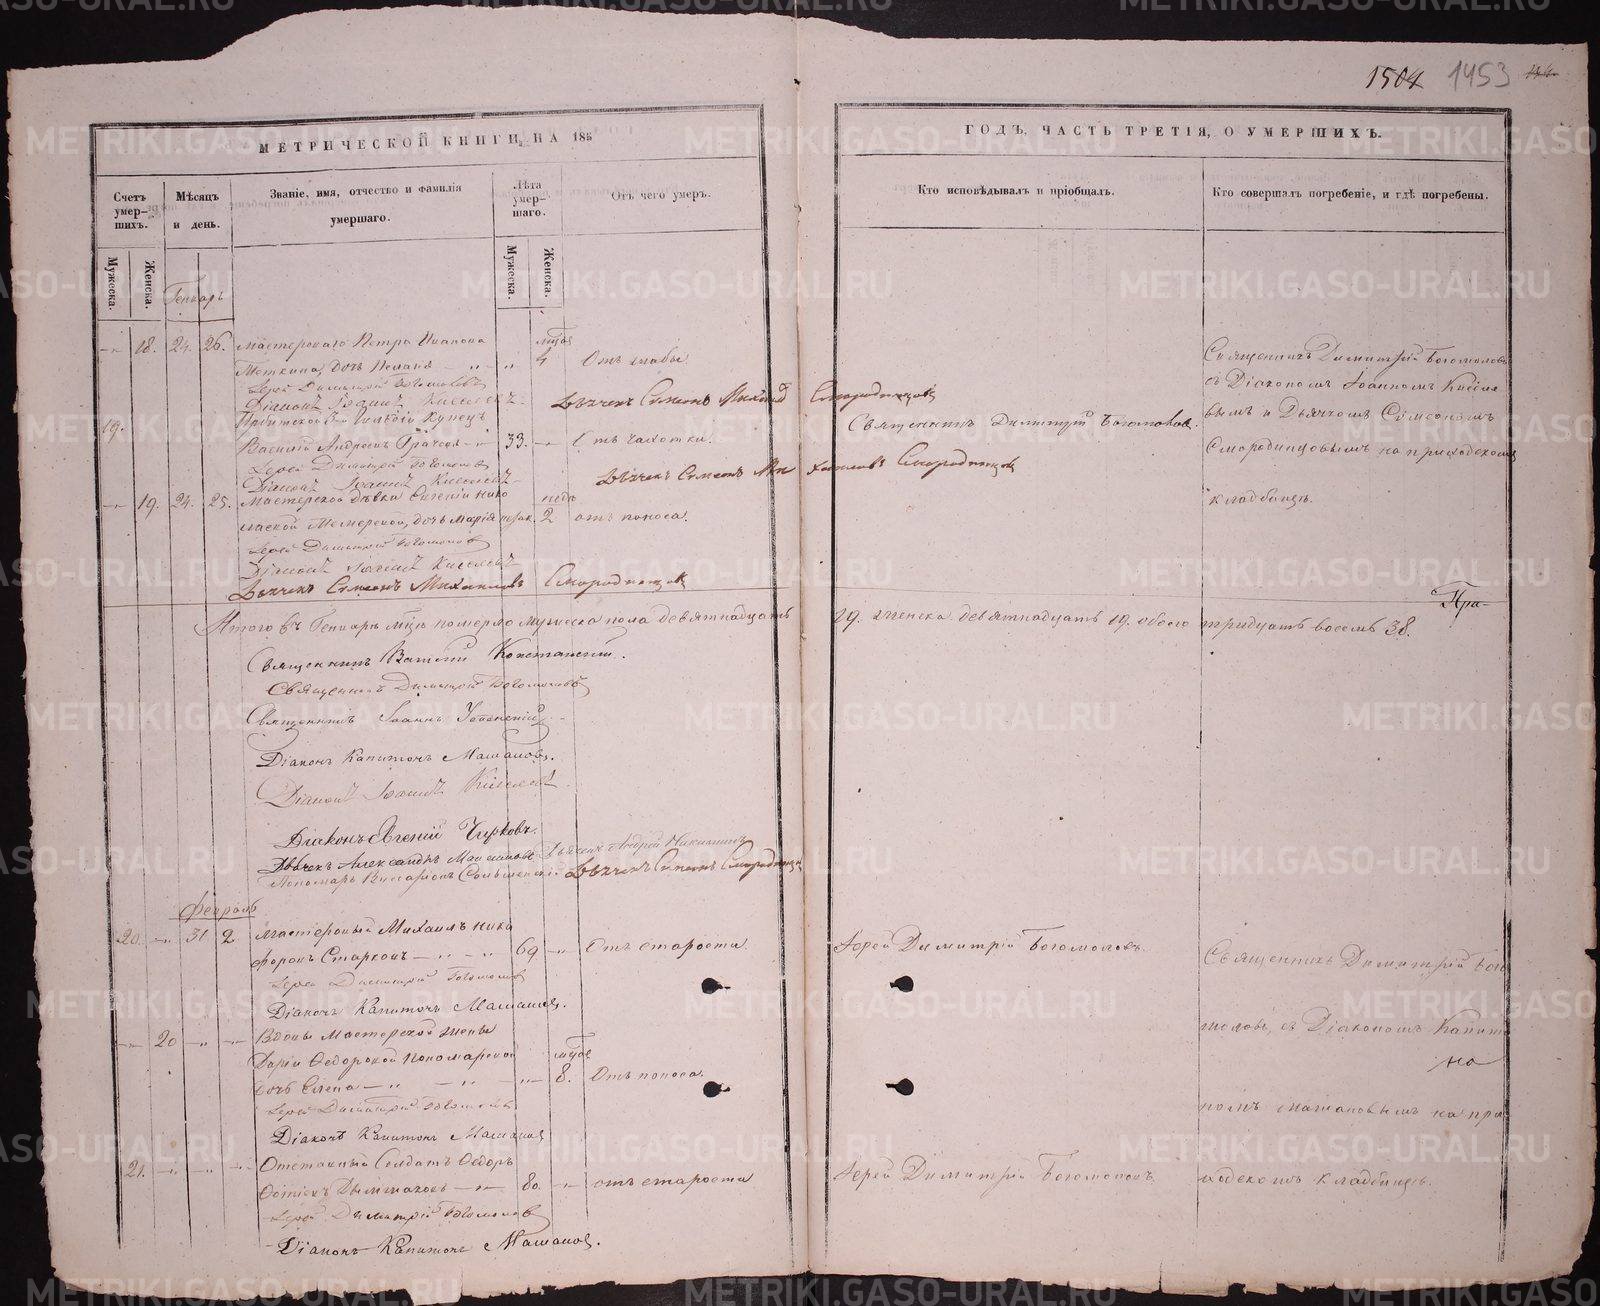 1504 1453
МЕТРИЧЕСКОЙ КНИГИ НА 185
ГОДЪ, ЧАСТЬ ТРЕТІЯ, О УМЕРШИХЪ.
Счетъ умер-шихъ.
Мѣсяцъ и день.
Званіе, имя, отчество и фамилія умершаго.
Лѣта умер-шаго.
Отъ чего умеръ.
Кто исповѣдывалъ и пріобщалъ.
Кто совершалъ погребеніе, и гдѣ погребены.
Мужеска. Женска.
Мужеска. Женска.
Генварь
18. 24. 26. Мастероваго Петра Иванова
дочь 4 Отъ слабы
Іерей Димитрій Богомоловъ
Діаконъ Іоаннъ Киселевъ
Дьячекъ Симеонъ Михайлов Смородинцовъ
Священникъ Димитрій Богомоловъ
съ Діакономъ Іоанномъ Киселе
вымъ и Дьячкомъ Симеономъ
Смородинцовымъ на приходскомъ
кладбищѣ.
19. Ирбитской 3й Гильдіи Купецъ
Василій Андреевъ Грачевъ 33. Отъ чахотки.
Священникъ Димитрій Богомоловъ
Іерей Димитрій Богомоловъ
Діаконъ Іоаннъ Киселевъ
Дьячекъ Симеонъ Михайловъ Смородинцовъ
19. 24. 25. Мастерской дѣвки Евгеніи Нико
лаевой дочь Марія незак. недѣ 2 отъ поноса.
Іерей Димитрій Богомоловъ
Діаконъ Іоаннъ Киселевъ
Дьячекъ Симеонъ Михайловъ Смородинцовъ
Итого въ Генварѣ мцѣ померло мужеска пола девятнадцать 19. женска девятнадцать 19. обоего тридцать восемь 38.
Священникъ Василій
Священникъ Димитрій Богомоловъ
Священникъ Іоаннъ Успенскій
Діаконъ Капитонъ Машановъ.
Діаконъ Іоаннъ Киселевъ
Діаконъ Евгеній Чирковъ.
Дьячекъ Александръ Дьячекъ Андрей
Пономарь Виссаріонъ Дьячекъ Симеонъ Смородинцов
Февраль
20. 31 2 Мастеровый Михаилъ Ники
форовъ Старковъ 69 Отъ старости
Іерей Димитрій Богомоловъ.
Священникъ Димитрій Бого
Іерей Димитрій Богомолов
Діаконъ Капитонъ Машановъ.
20 Вдовы Мастерской жены
Даріи Федоровой Пономаревой
дочь Елена 8. Отъ поноса.
моловъ, съ Діакономъ Капит
Іерей Димитрій Богомоловъ
Діаконъ Капитонъ Машанов
номъ Машановымъ на при
21. Отставный Солдатъ Федоръ
80. отъ старости
Іерей Димитрій Богомоловъ.
ходскомъ кладбищѣ.
Іерей Димитрій Богомоловъ
Діаконъ Капитонъ Машановъ.
METRIKI.GASO-URAL.RU